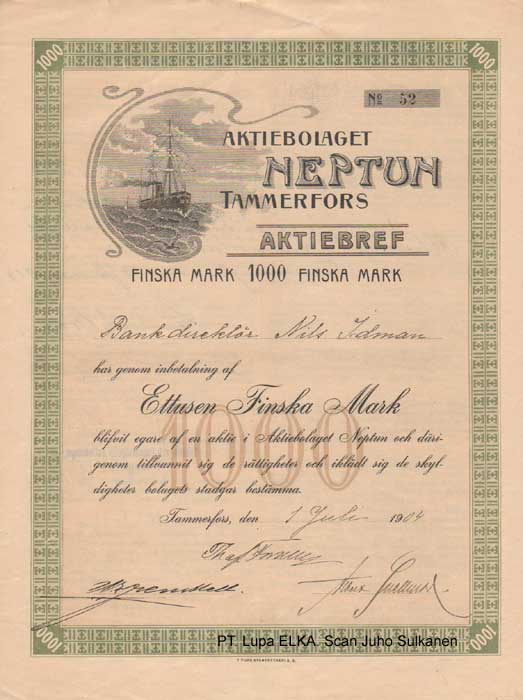 1000
1000
No 52
AKTIEBOLAGET
NEPTUN
TAMMERFORS
AKTIEBREF
FINSKA MARK 1000 FINSKA MARK
Bankdirektör Nils Idman
har genom inbetalning af
Ettusen Finska Mark
1000
blifvit egare af en aktie i Aktiebolaget Neptun och däri-
genom tillvunnit sig de rättigheter och iklädt sig de skyl-
digheter bolagets stadgar bestämma.
Tammerfors, den 1 Juli 1904
PT. Lupa ELKA Scan Juho Sulkanen
1000
1000